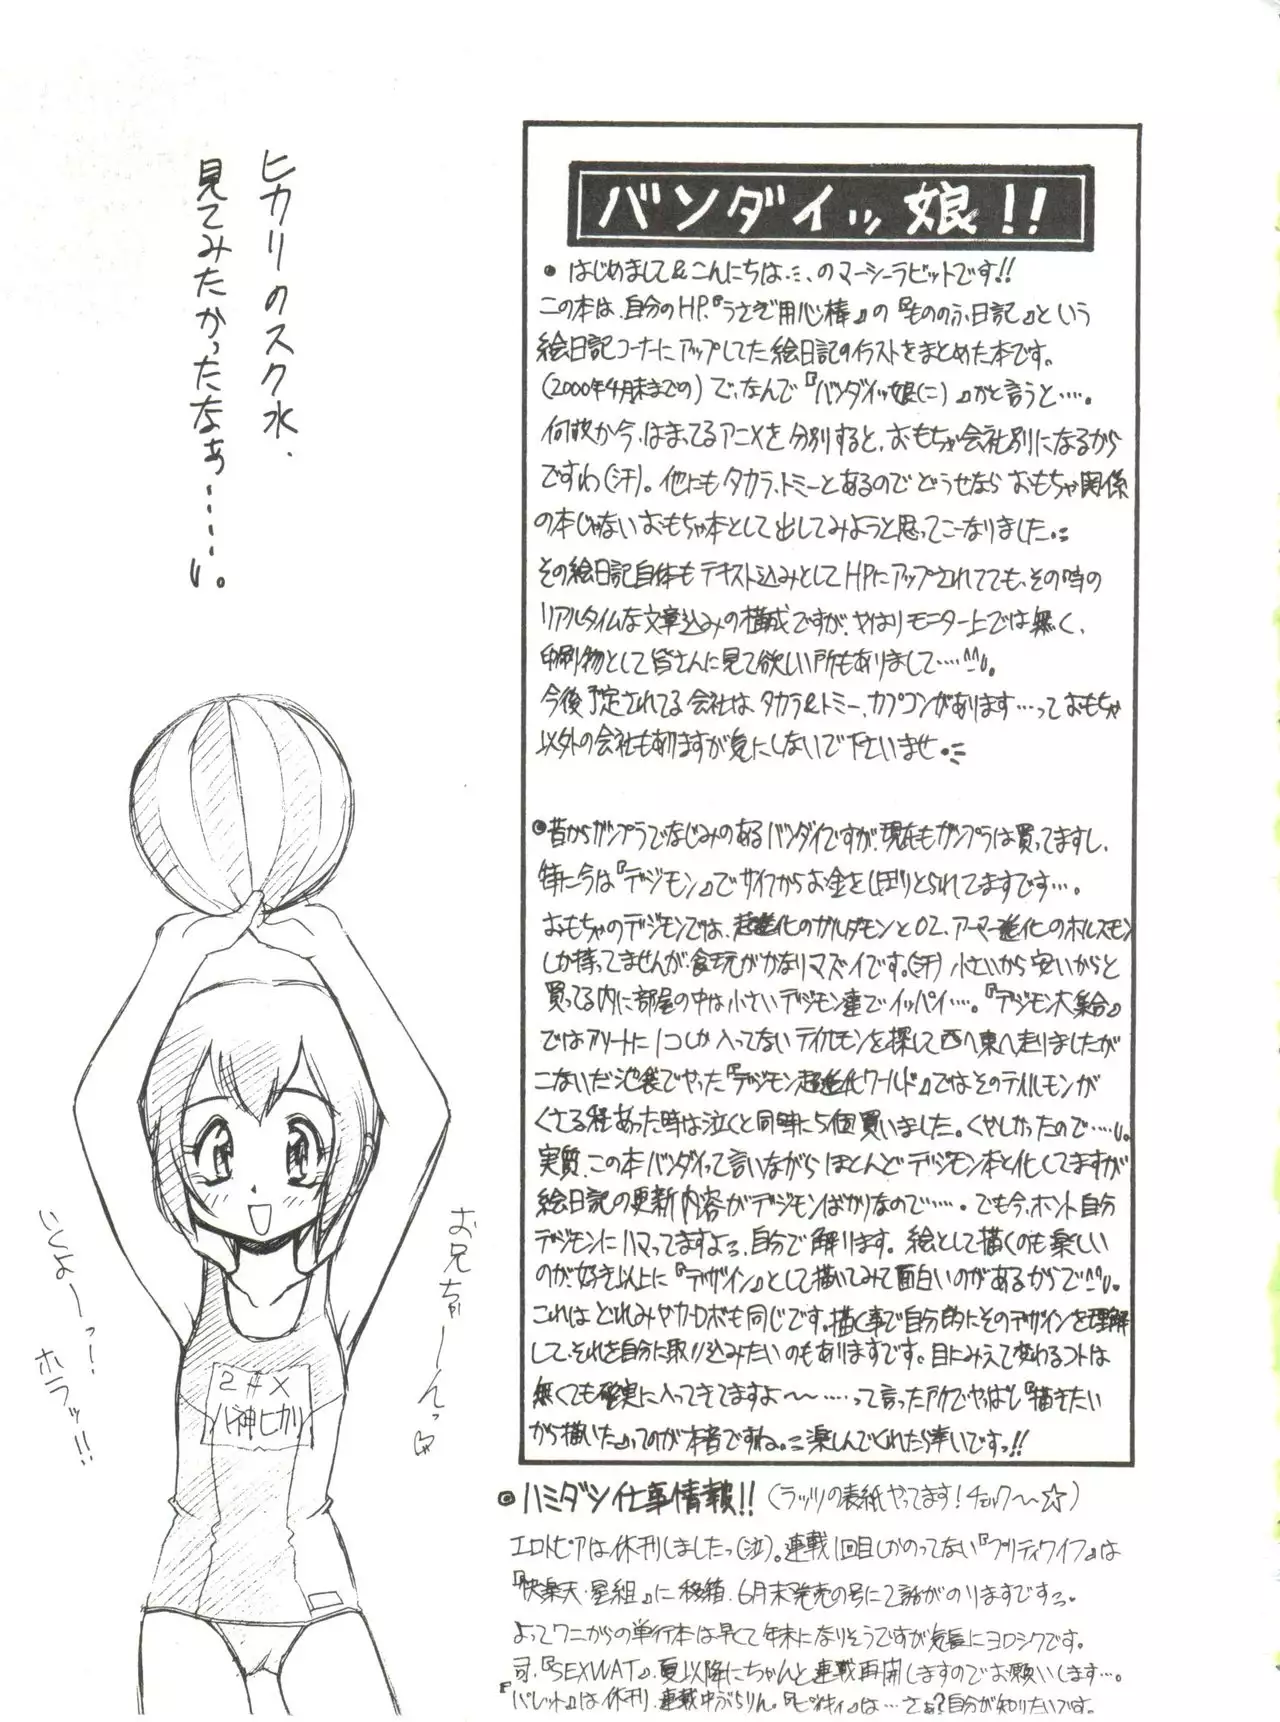 ヒカリのスク水、
見てみたかったなぁ‥‥‥。
バンダイッ娘!!
● はじめまして&こんにちは‥、のマーシーラビットです!!
この本は、自分のHP、『うさぎ用心棒』の『もののふ日記』という
絵日記コーナーにアップしてた絵日記のイラストをまとめた本です。
(2000年4月末までの)で、なんで『バンダイッ娘(こ)』かと言うと‥‥。
何故か今、はまってるアニメを分別すると、おもちゃ会社別になるから
ですわ(汗)。他にもタカラ、トミーとあるのでどうせなら おもちゃ関係
の本じゃないおもちゃ本として出してみようと思ってこーなりました。
その絵日記自体もテキスト込みとしてHPにアップされてても、その時の
リアルタイムな文章込みの構成ですが、やはりモニター上では無く、
印刷物として皆さんに見て欲しい所もありまして‥‥^^;。
今後予定されてる会社は、タカラ&トミー、カプコンがあります‥‥っておもちゃ
以外の会社もありますが気にしないで下さいませ
●昔からガンプラでなじみのあるバンダイですが、現在もガンプラは買ってますし、
特に今は『デジモン』でサイフからお金をしぼりとられてますです‥‥。
おもちゃのデジモンでは、超進化のガルダモンと02、アーマー進化のホルスモン
しか持ってませんが、食玩がかなりマズイです。(汗) 小さいから安いからと
買ってる内に部屋の中は小さいデジモン達でイッパイ‥‥。『デジモン大集合』
ではアソートに1コしか入ってないテイルモンを探して西へ東へ走りましたが
こないだ池袋でやった『デジモン超進化ワールド』ではそのテイルモンが
くさる程あった時は泣くと同時に5個買いました。くやしかったので‥‥。
実質、この本バンダイって言いながらほとんどデジモン本と化してますが
絵日記の更新内容がデジモンばかりなので‥‥‥。でも今、ホント自分
デジモンにハマってますよっ、自分で解ります。絵として描くのも楽しい
のが、好き以上に『デザイン』として描いてみて面白いのがあるからで^^;。
これは どれみやカーロボも同じです。描く事で自分的にそのデザインを理解
して、それを自分に取り込みたいのもありますです。目にみえて変わるコトは
無くても確実に入ってきてますよ〜〜‥‥‥って言ったアトでやっぱし『描きたい
から描いた』ってのが本音ですね。楽しんでくれたら幸いですっ!!
お兄ちゃーーんっ♡
いくよーーっ!
ホラッ!!
2年X
八神ヒカリ
◎ハミダシ仕事情報!! (ラッツの表紙やってます! チェック〜〜☆)
エロトピアは休刊しましたっ(泣)。連載1回目しかのってない『プリティワイフ』は
『快楽天・星組』に移籍、6月末発売の号にて2話がのりますですっ。
よってワニからの単行本は早くて年末になりそうですが気長にヨロシクです。
司、『SEXWAT』、夏以降にちゃんと連載再開しますのでお願いします‥‥。
『パレット』は休刊、連載中ぶらりん。『ピンキィ』は‥‥さぁ?自分が知りたいです。